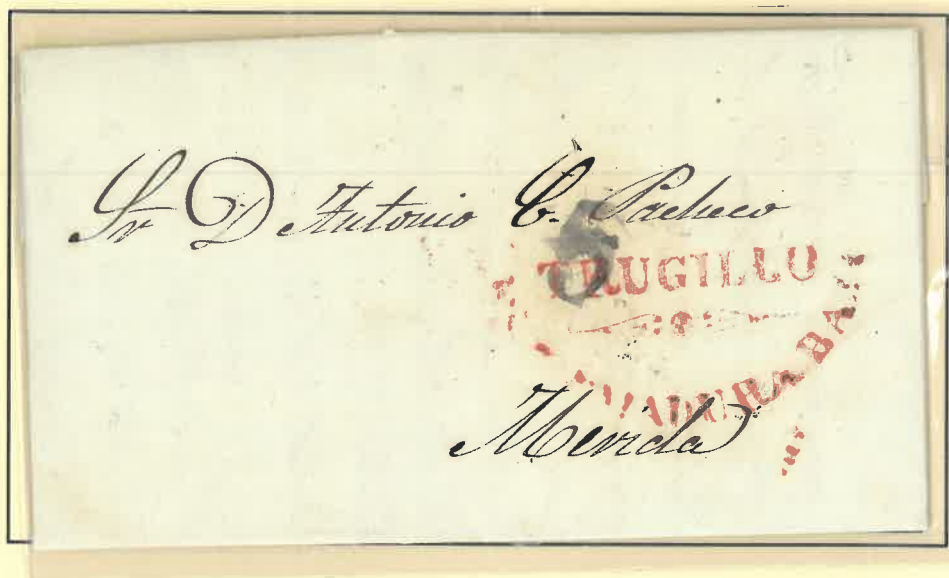 Sr D Antonio C. Pacheco
6
TRUGILLO
MADURA BA
Merida